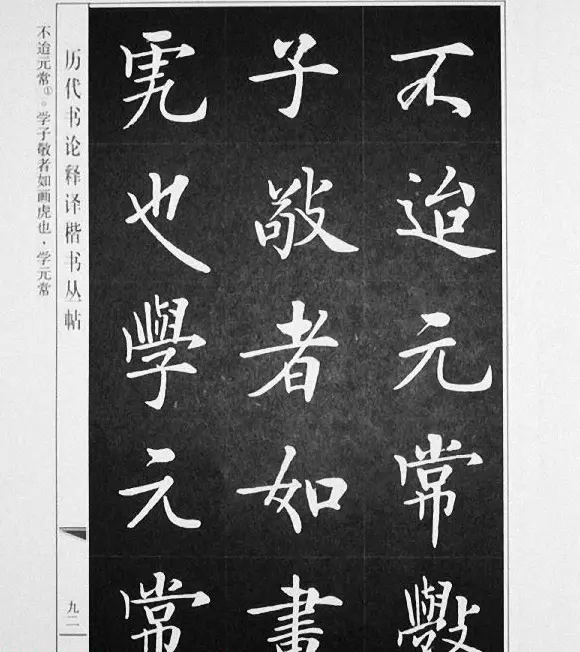 不迨元常斆
子敬者如畫
虎也學元常
历代书论释译楷书丛帖
九二
不迨元常①。学子敬者如画虎也，学元常